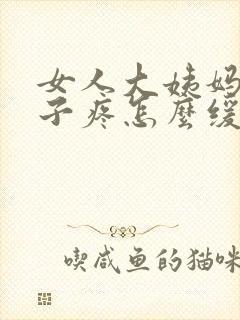 女人大姨妈
子疼怎麼缓
喫咸鱼的猫咪